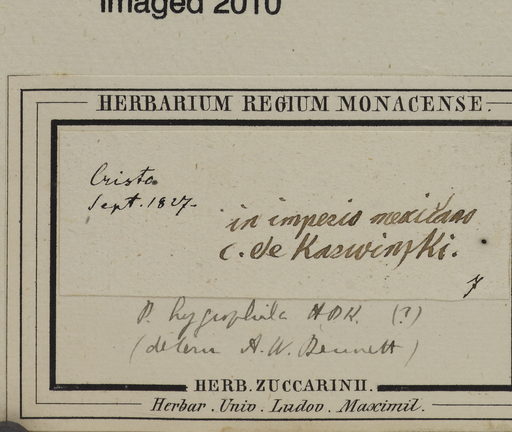 Imaged 2010
HERBARIUM REGIUM MONACENSE.
Cristo
Sept. 1827.
in imperio mexicano
C. de Karwinski.
P. hygrophila HBK. (?)
(determ A. W. Bennett)
HERB. ZUCCARINII.
Herbar. Univ. Ludov. Maximil.